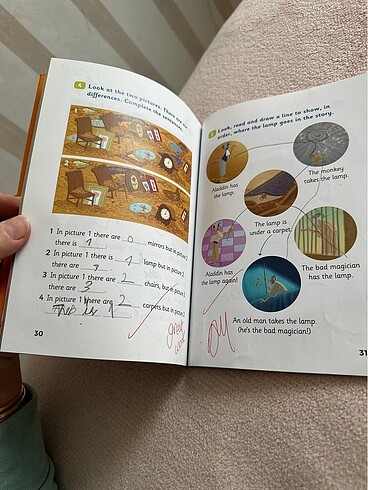 4 Look at the two pictures. There are
differences. Complete the sentences.
2
1 In picture 1 there are 0 mirrors but in picture 2
there is 1
2 In picture 1 there is 1 lamp but in picture 2
there are
3 In picture 1 there are 2 chairs, but in picture
there are 3
4 In picture 1 there are 2 carpets but in picture
30
great
work
Look, read and draw a line to show, in
order, where the lamp goes in the story.
Aladdin has
the lamp.
The monkey
takes the lamp.
The lamp is
under a carpet.
Aladdin has
the lamp again!
The bad magician
has the lamp.
An old man takes the lamp.
(he's the bad magician!)
31